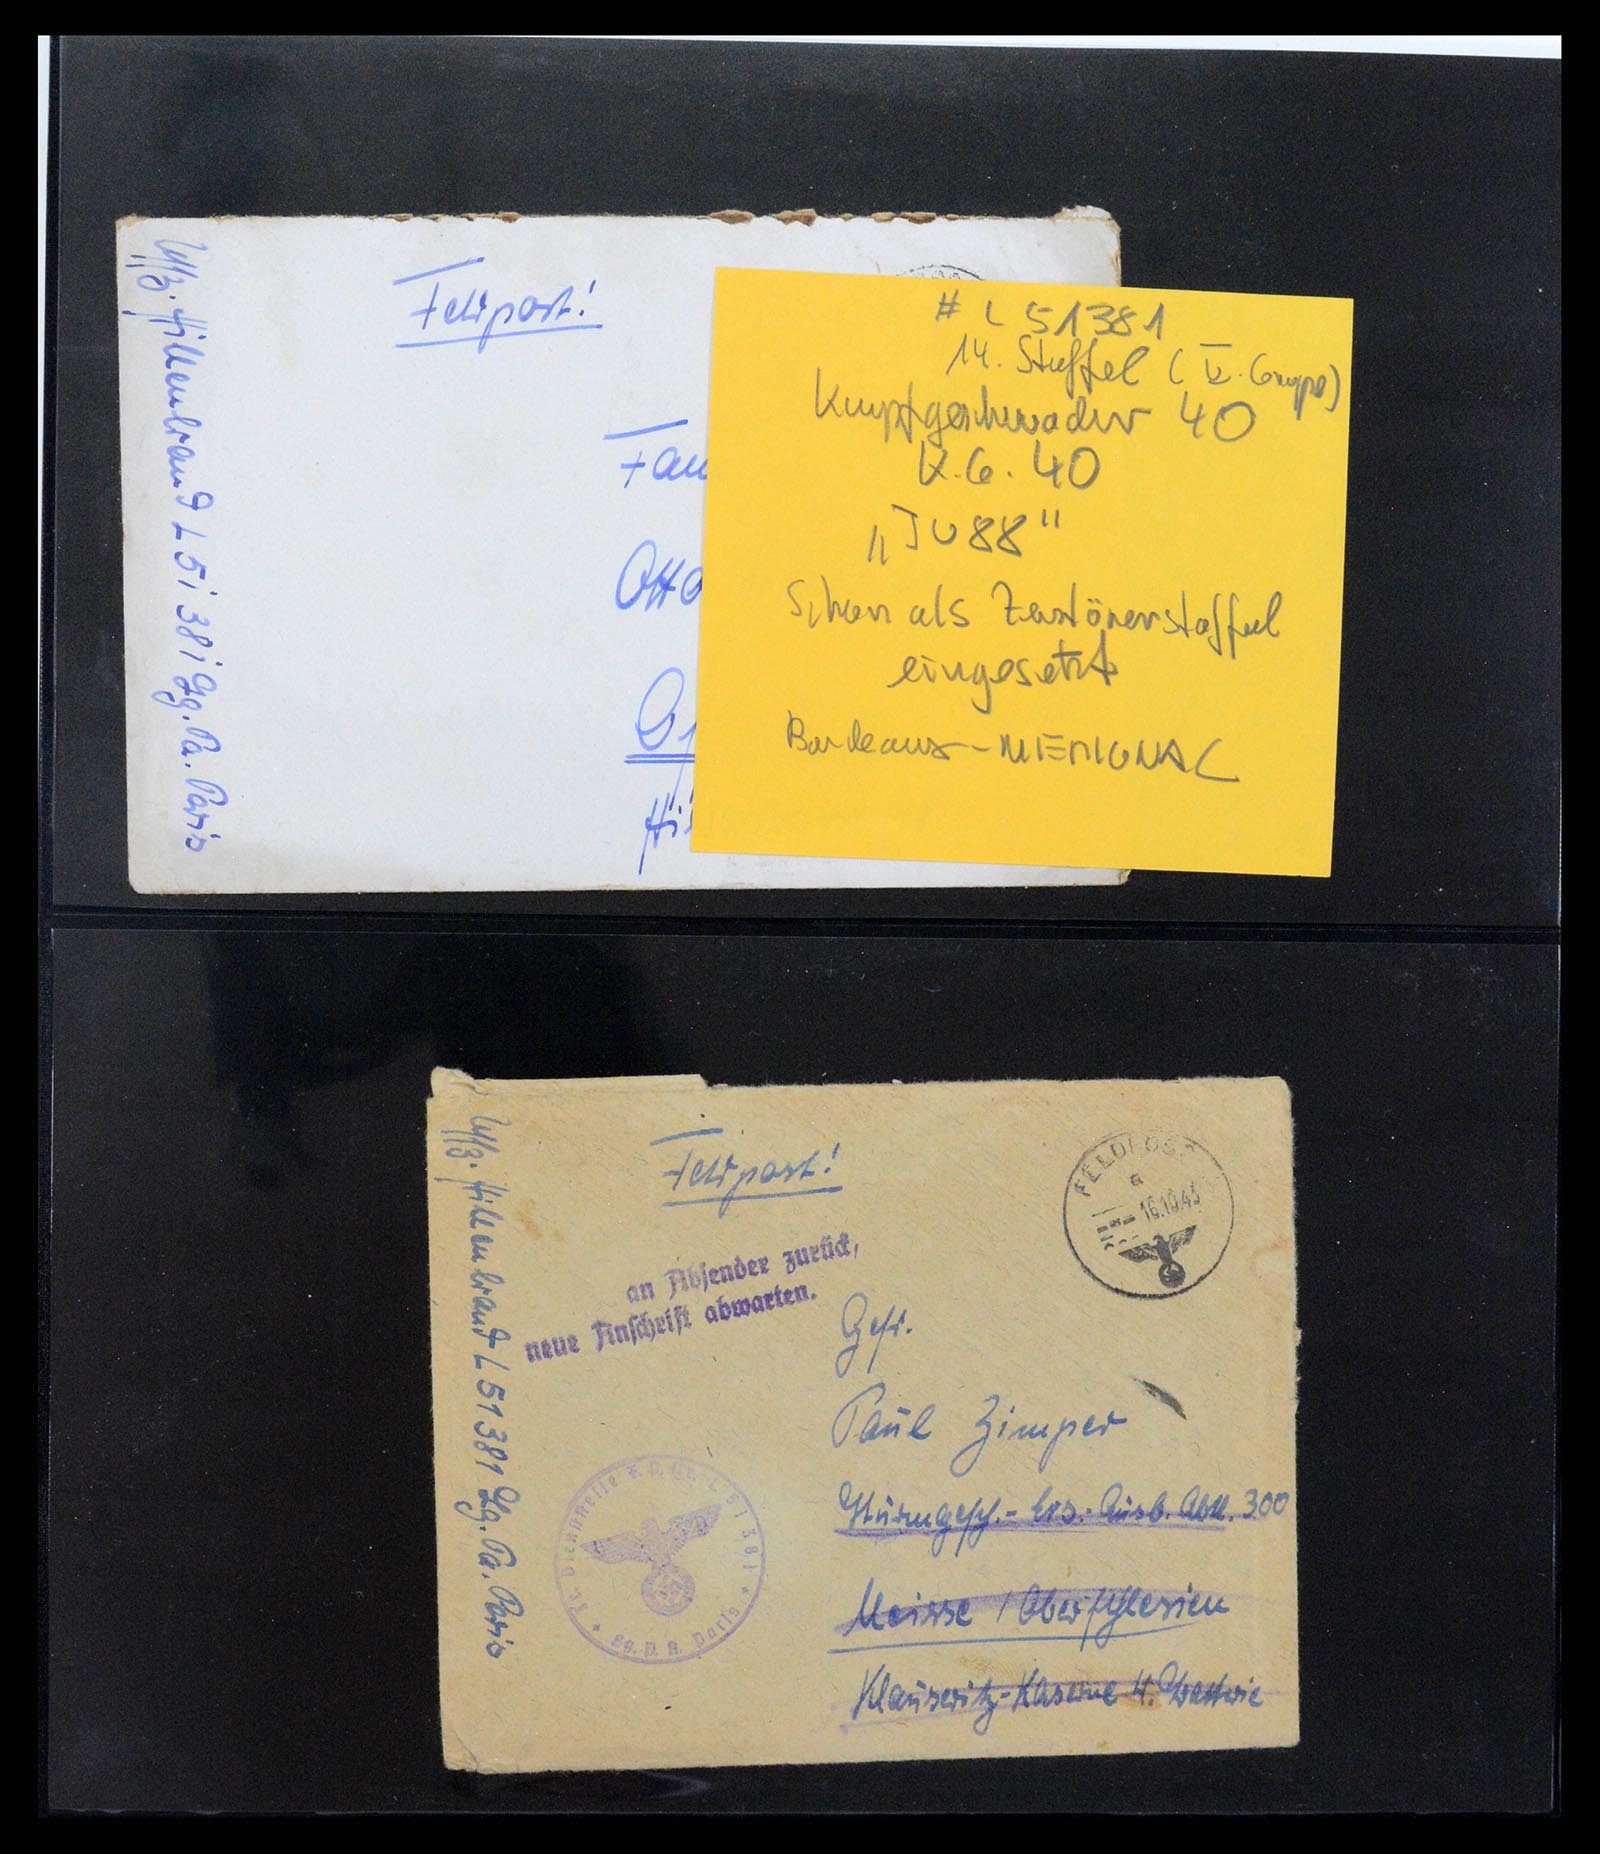 Uffz. Hillenbrand L 51381 Lg. Pa. Paris
Feldpost!
Fam
Otto
Hi
# L 51381
14. Staffel ( V. Gruppe)
Kampfgeschwader 40
K.G. 40
„JU88"
Schon als Zerstörerstaffel
eingesetzt
Bordeaux - MERIGNAC
Uffz. Hillenbrand L 51381 Lg. Pa. Paris
Feldpost!
FELDPOST
a
16.10.43
an Absender zurück,
neue Anschrift abwarten.
Gefr.
Paul Zimper
Sturmgesch.- Ers.- Ausb. Abtl. 300
Neisse / Oberschlesien
Klausewitz-Kaserne 4. Batterie
Dienststelle F. P. Nr. L 51381
Lg. P. A. Paris